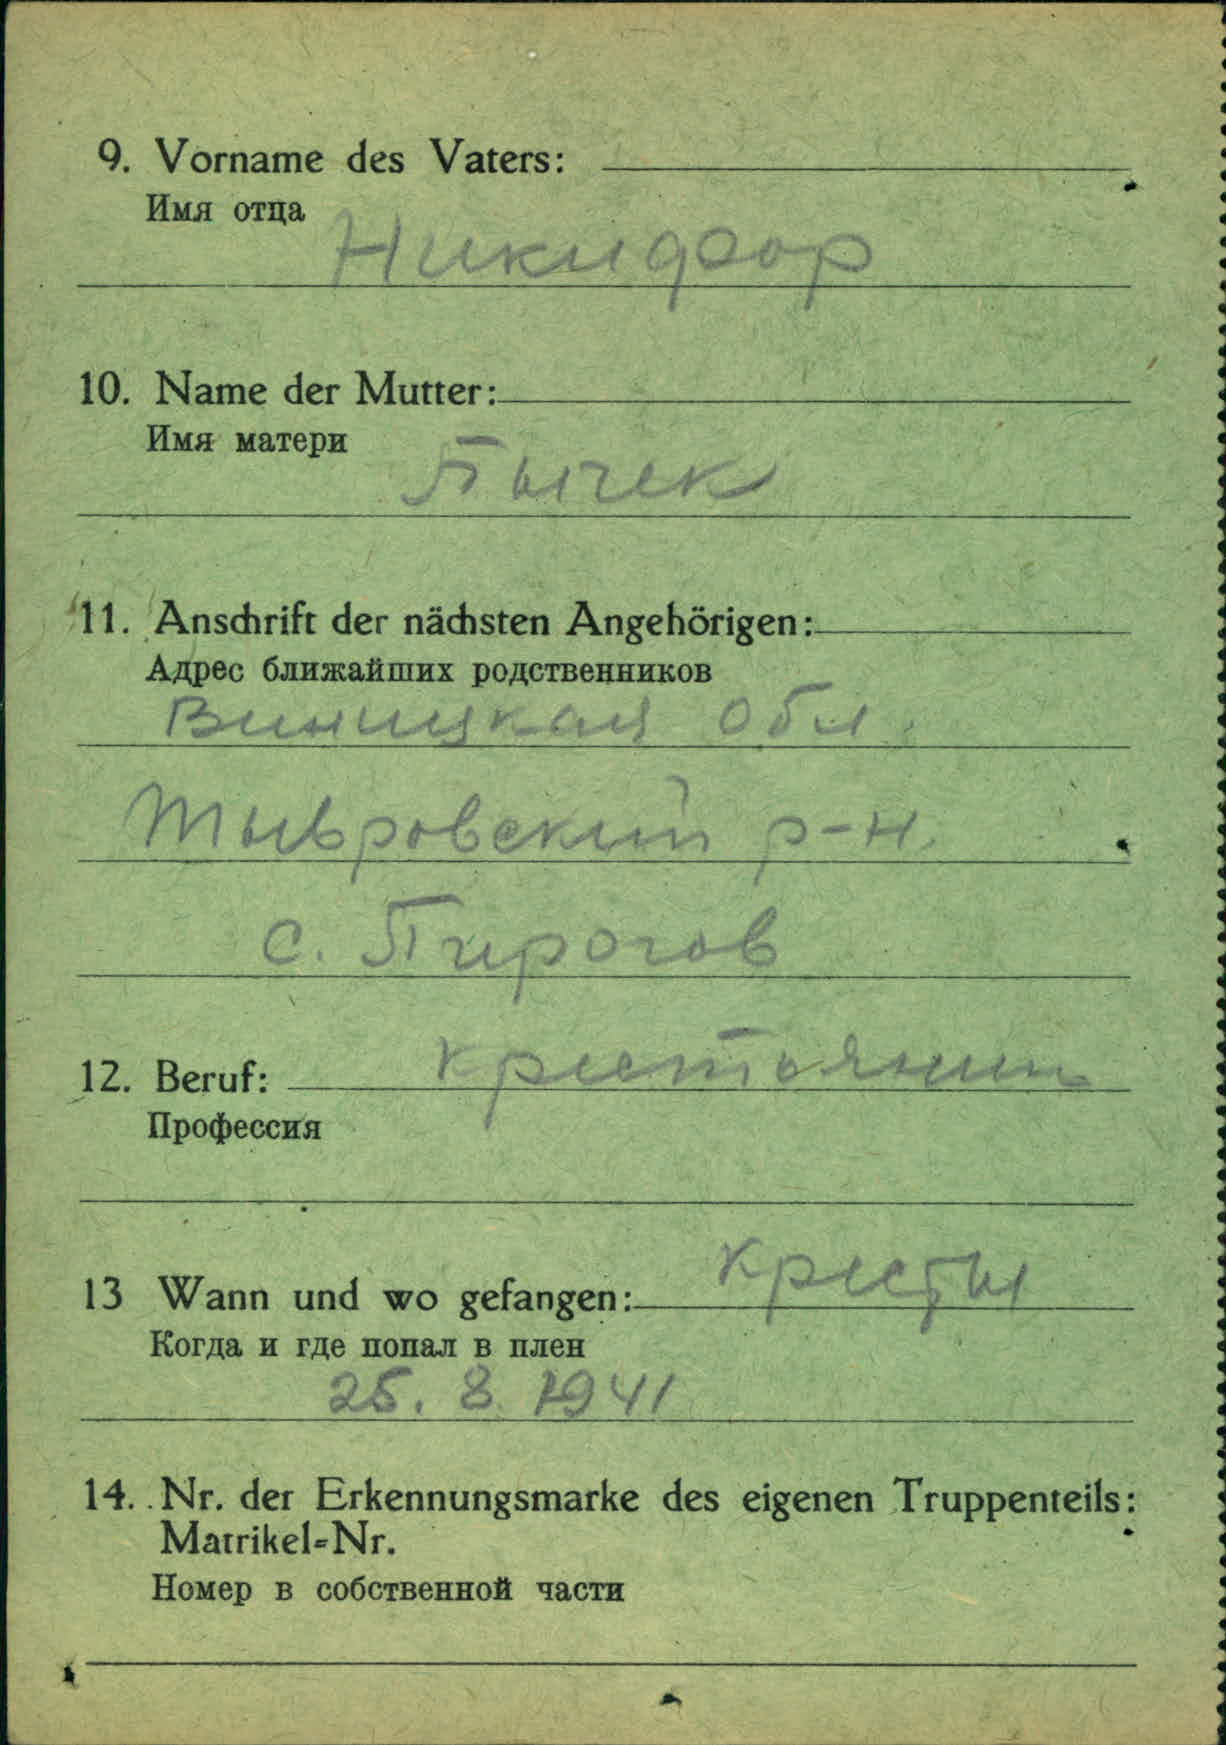 9. Vorname des Vaters:
Имя отца
Никифор
10. Name der Mutter:
Имя матери
Пычек
11. Anschrift der nächsten Angehörigen:
Адрес ближайших родственников
Виницкая обл.
Тывровский р-н
с. Пирогов
12. Beruf:
крестьянин
Профессия
13 Wann und wo gefangen:
кресты
Когда и где попал в плен
25. 8. 1941
14. Nr. der Erkennungsmarke des eigenen Truppenteils:
Matrikel-Nr.
Номер в собственной части